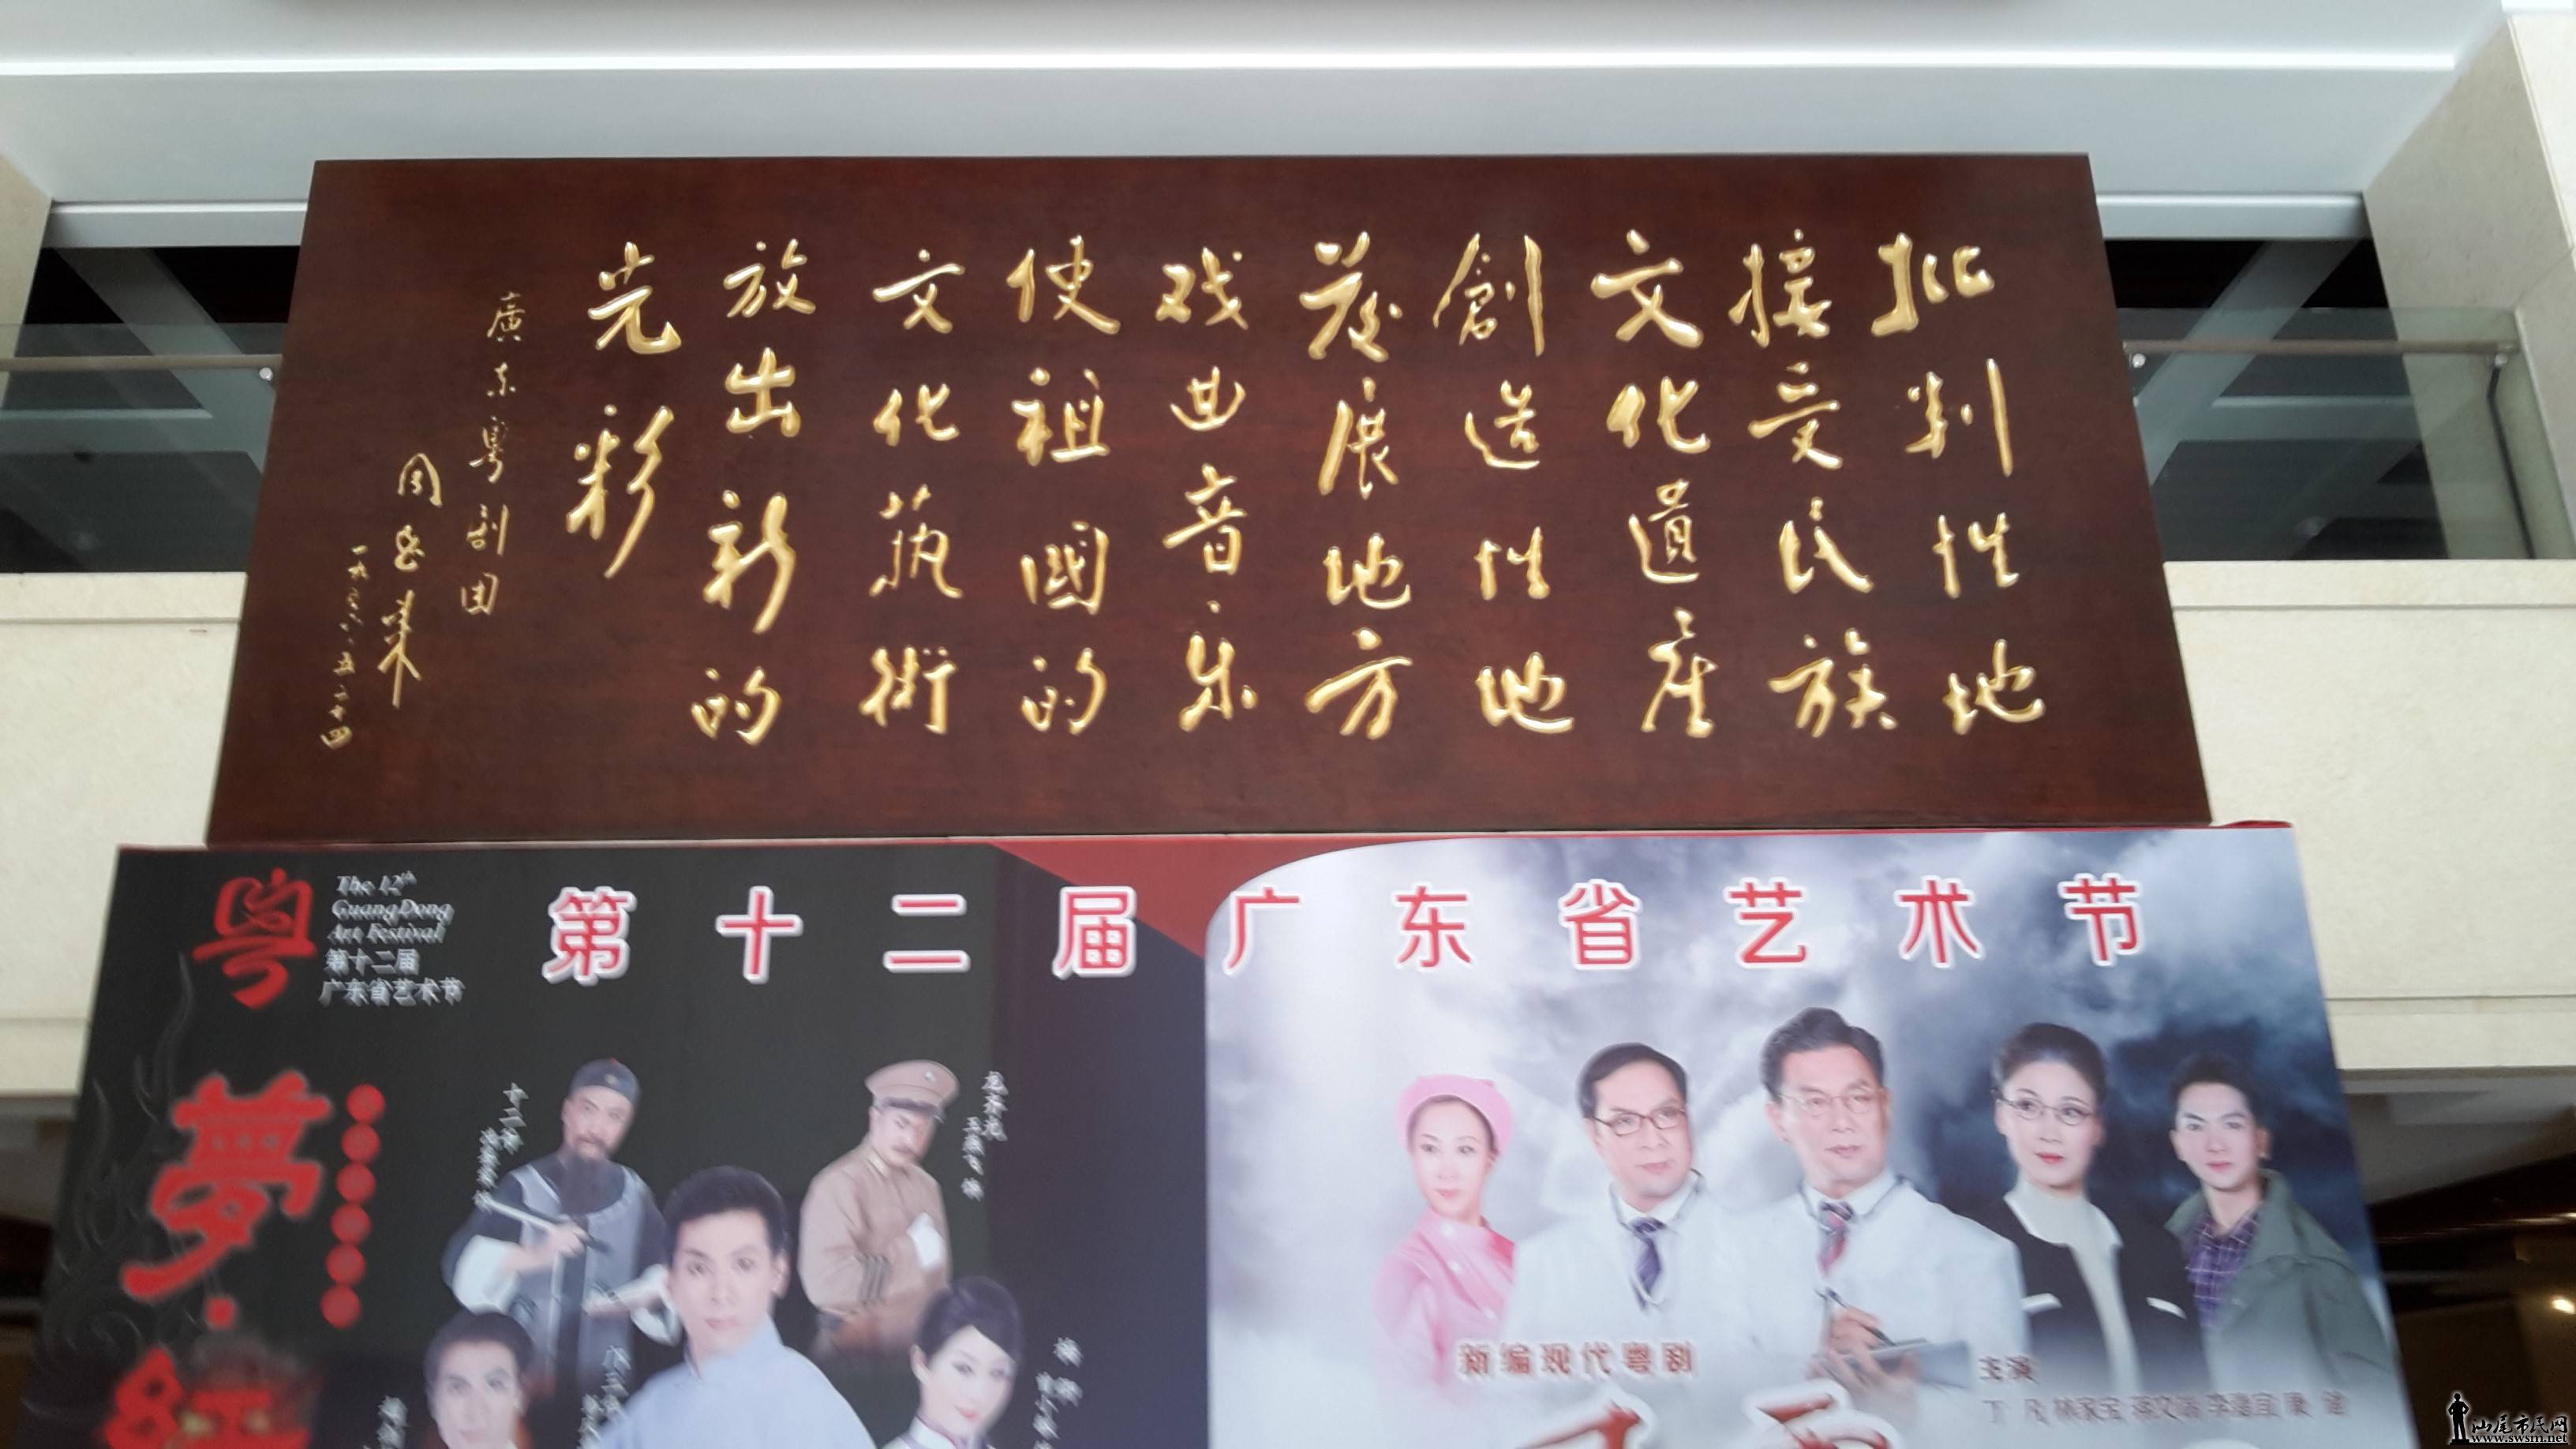 批判性地
接受民族
文化遺產
創造性地
发展地方
戏曲音乐
使祖國的
文化艺術
放出新的
光彩
廣东粤剧团
周恩来
一九五六·五·二十四
粤
The 12th
GuangDong
Art Festival
第十二届
广东省艺术节
第十二届广东省艺术节
夢·紅
新编现代粤剧
主演
汕尾市民网
www.swsm.net